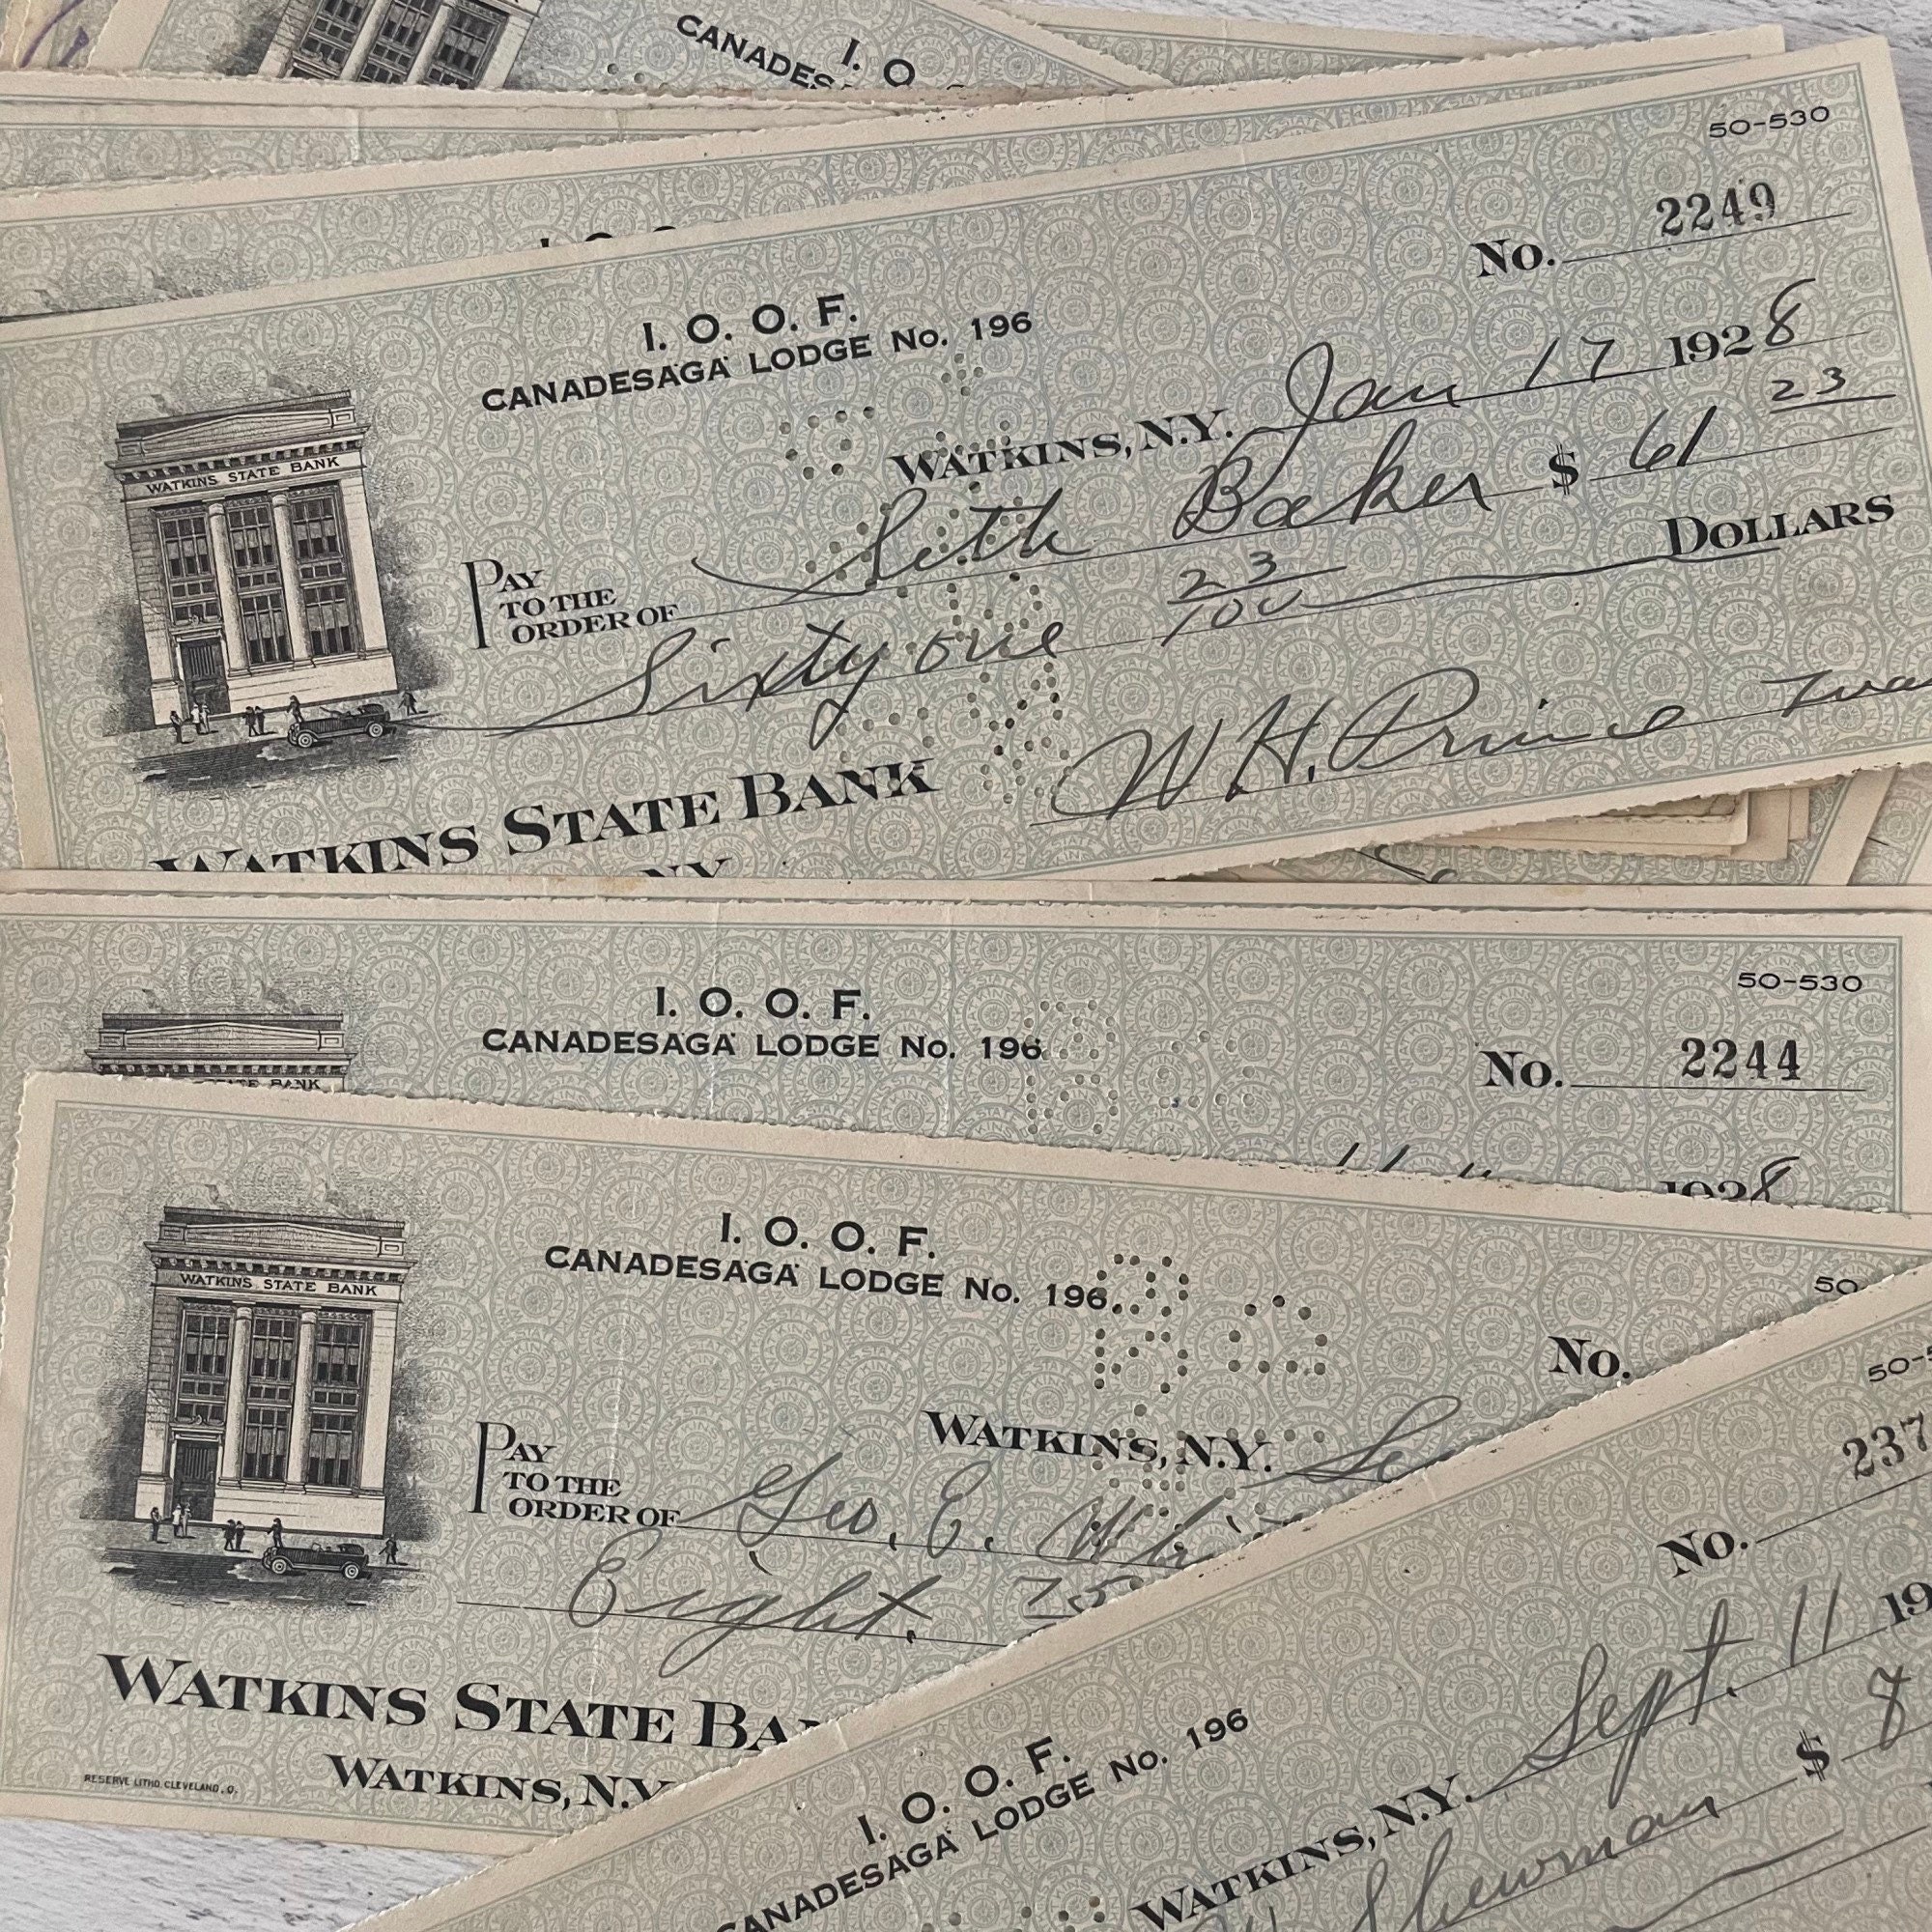 I. O
CANADES
50-530
No. 2249
I. O. O. F.
CANADESAGA LODGE No. 196
WATKINS, N.Y. Jan 17 1928
WATKINS STATE BANK
PAY TO THE ORDER OF Seth Baker $ 61 23
Sixty one 23/100 DOLLARS
W H. Prince
WATKINS STATE BANK
N.Y.
50-530
I. O. O. F.
CANADESAGA LODGE No. 196
No. 2244
STATE BANK
1928
I. O. O. F.
CANADESAGA LODGE No. 196
50
No.
WATKINS STATE BANK
WATKINS, N.Y. Se
PAY TO THE ORDER OF Geo. E.
Eight. 75
WATKINS STATE BA
WATKINS, N.Y
RESERVE LITHO. CLEVELAND, O.
50-5
No. 237
I. O. O. F.
CANADESAGA LODGE No. 196
WATKINS, N.Y. Sept. 11 19
Shewman $ 8